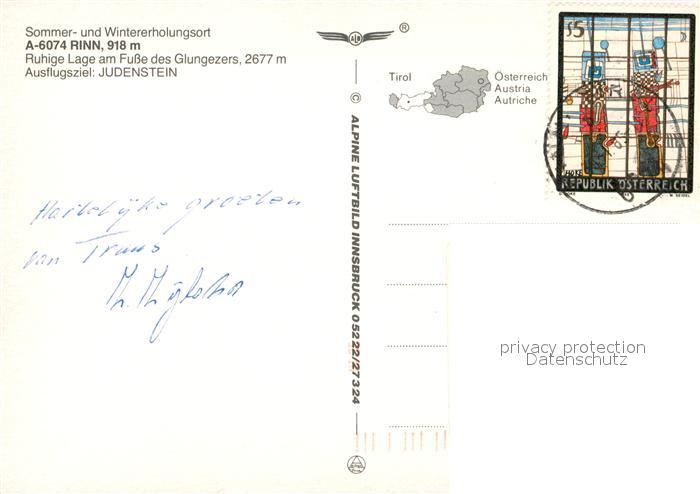 Sommer- und Wintererholungsort
A-6074 RINN, 918 m
Ruhige Lage am Fuße des Glungezers, 2677 m
Ausflugsziel: JUDENSTEIN
ALB
®
Tirol
Österreich
Austria
Autriche
S5
REPUBLIK ÖSTERREICH
© ALPINE LUFTBILD INNSBRUCK 05222/27324
Hartelijke groeten
van Truus
privacy protection
Datenschutz